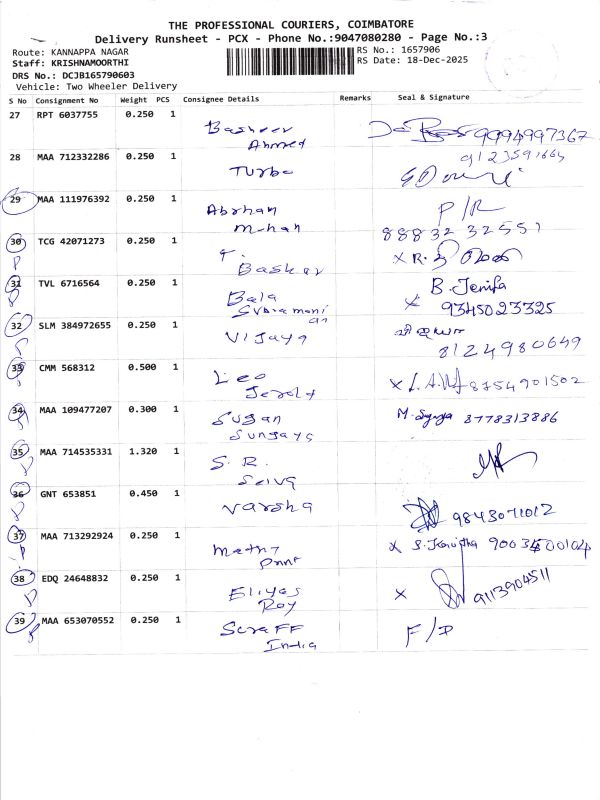 THE PROFESSIONAL COURIERS, COIMBATORE
Delivery Runsheet - PCX - Phone No.:9047080280 - Page No.:3
Route: KANNAPPA NAGAR RS No.: 1657906
Staff: KRISHNAMOORTHI RS Date: 18-Dec-2025
DRS No.: DCJB165790603
Vehicle: Two Wheeler Delivery
S No Consignment No Weight PCS Consignee Details Remarks Seal & Signature
27 RPT 6037755 0.250 1
Basheer 9094997367
Ahmed
28 MAA 712332286 0.250 1 9123591664
Turbo
29 MAA 111976392 0.250 1
Abrhan P/R
Mohan
30 TCG 42071273 0.250 1 88832 32551
T. x R.
Baskar
31 TVL 6716564 0.250 1 B. Jenifa
Bala x 9345023325
Subramoni
an
32 SLM 384972655 0.250 1 விஜயா
Vijaya 8124980649
33 CMM 568312 0.500 1
Leo x 8754901502
Jerold
34 MAA 109477207 0.300 1 M. 8778313886
Sugan
Sungays
35 MAA 714535331 1.320 1
S. R.
Selva
36 GNT 653851 0.450 1
Varsha 9843071012
37 MAA 713292924 0.250 1 x S. 9003400104
Print
38 EDQ 24648832 0.250 1
Eliyas x 9113904511
Roy
39 MAA 653070552 0.250 1
Scraff F/D
India